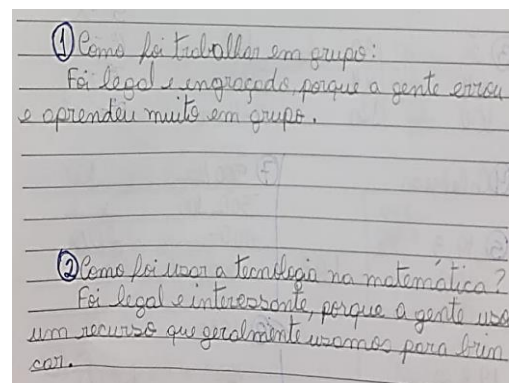 ① Como foi trabalhar em grupo:
Foi legal e engraçado, porque a gente errou
e aprendeu muito em grupo.
② Como foi usar a tecnologia na matemática?
Foi legal e interessante, porque a gente usa
um recurso que geralmente usamos para brin
car.